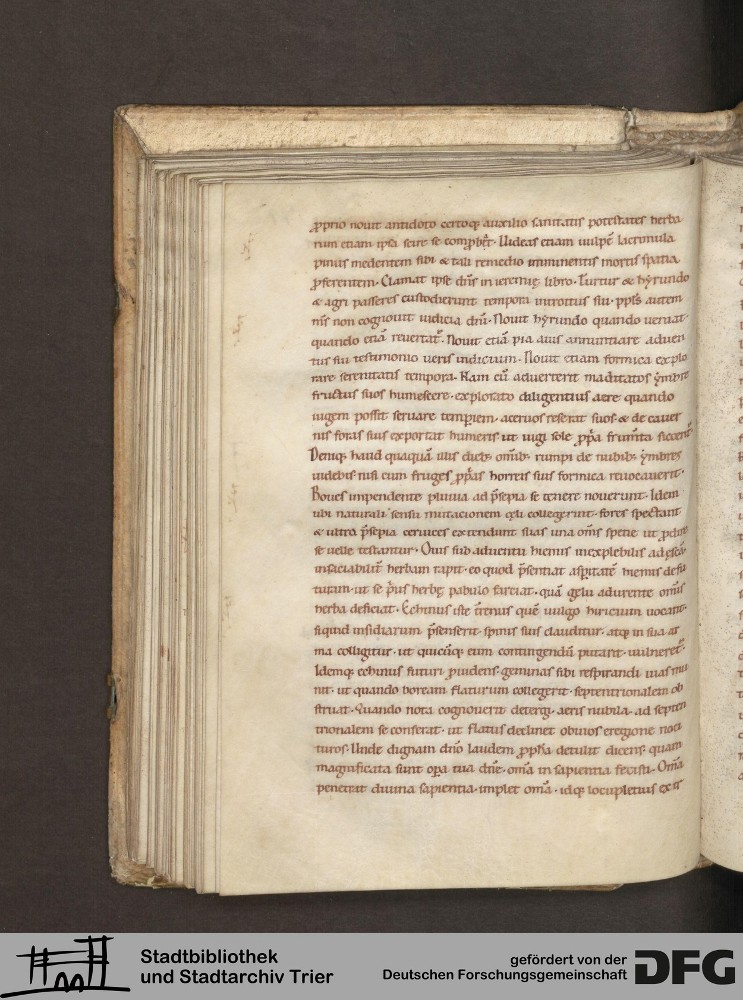 ꝓprio nouit antidoto certoq; auxilio sanitatis potestates herba
rum etiam ipsa scire se com̄ꝓbet̄. Uideas etiam uulpē lacrimula
pinus medentem sibi & tali remedio imminentis mortis spatia
ꝓferentem. Clamat ipse dn̄s in ieremię libro. Turtur & hyrundo
& agri passeres custodierunt tempora introitus sui. ppl's autem
m's non cognouit iudicia dn̄i. Nouit hyrundo quando ueniat.
quando etiā reuertat̄. Nouit etiā pia auis annuntiare aduen
tus sui testimonio ueris indicium. Nouit etiam formica explo
rare serenitatis tempora. Nam cū aduerterit maditatos ymbre
fructus suos humescere. explorato diligentius aere quando
iugem possit seruare temperiem. aceruos reserat suos. & de cauer
nis foras suis exportat humeris ut iugi sole ꝓpa frum̄ta siccent̄.
Deniq; haud quaquā illis dieb; omib; rumpi de nubib; ymbres
uidebis nisi cum fruges ꝓpas horreis suis formica reuocauerit.
Boues impendente pluuia ad p̄sepia se tenere nouerunt. Idem
ubi naturali sensu mutacionem cęli collegerint. foris spectant
& ultra p̄sepia ceruices extendunt suas una om̄s specie ut ꝓdire
se uelle testantur. Ouis sub aduentu hiemis inexplebilis ad escā.
insaciabilit̄ herbam rapit. eo quod p̄sentiat asp̄itatē hiemis defu
turam. ut se p̄us herbę pabulo farciat. quā gelu adurente omīs
herba deficiat. Echinus iste t̄renus quē uulgo hiricium uocant.
siquid insidiarum p̄senserit. spinis suis clauditur. atq; in sua ar
ma colligitur. ut quicūq; eum contingendū putarit. uulneret̄.
Idemq; echinus futuri ꝓuidens. geminas sibi respirandi uias mu
nit. ut quando boream flaturum collegerit. septentrionalem ob
struat. Quando nota cognouerit detergi. aeris nubila. ad septen
trionalem se conferat. ut flatus declinet obuios eregione noci
turos. Unde dignam dn̄o laudem ꝓph̄a detulit dicens. quam
magnificata sunt oꝑa tua dn̄e. om̄a in sapientia fecisti. Om̄a
penetrat diuina sapientia. implet om̄a. idq; locupletius ex ir
Stadtbibliothek
und Stadtarchiv Trier
gefördert von der
Deutschen Forschungsgemeinschaft
DFG